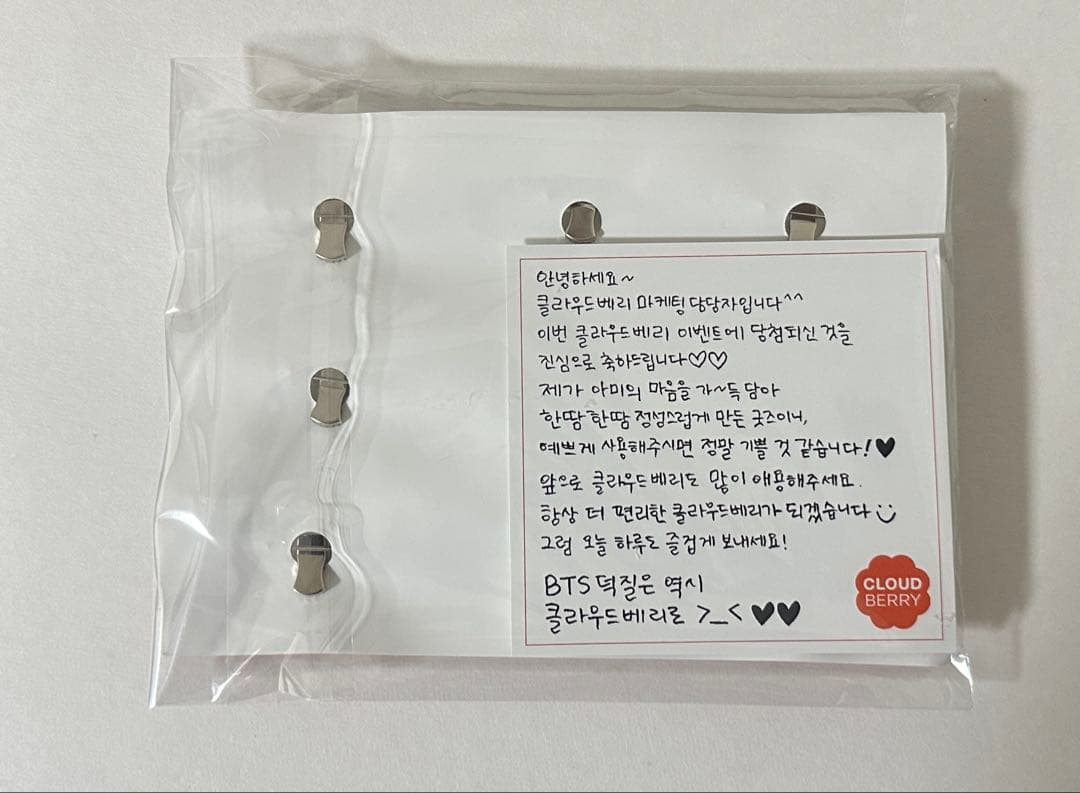 안녕하세요~
클라우드베리 마케팅 담당자입니다^^
이번 클라우드베리 이벤트에 당첨되신 것을
진심으로 축하드립니다♡♡
제가 아미의 마음을 가~득 담아
한땀 한땀 정성스럽게 만든 굿즈이니,
예쁘게 사용해주시면 정말 기쁠 것 같습니다!♥
앞으로 클라우드베리도 많이 애용해주세요.
항상 더 편리한 클라우드베리가 되겠습니다
그럼 오늘 하루도 즐겁게 보내세요!
BTS 덕질은 역시
클라우드베리로 >_< ♥♥
CLOUD
BERRY